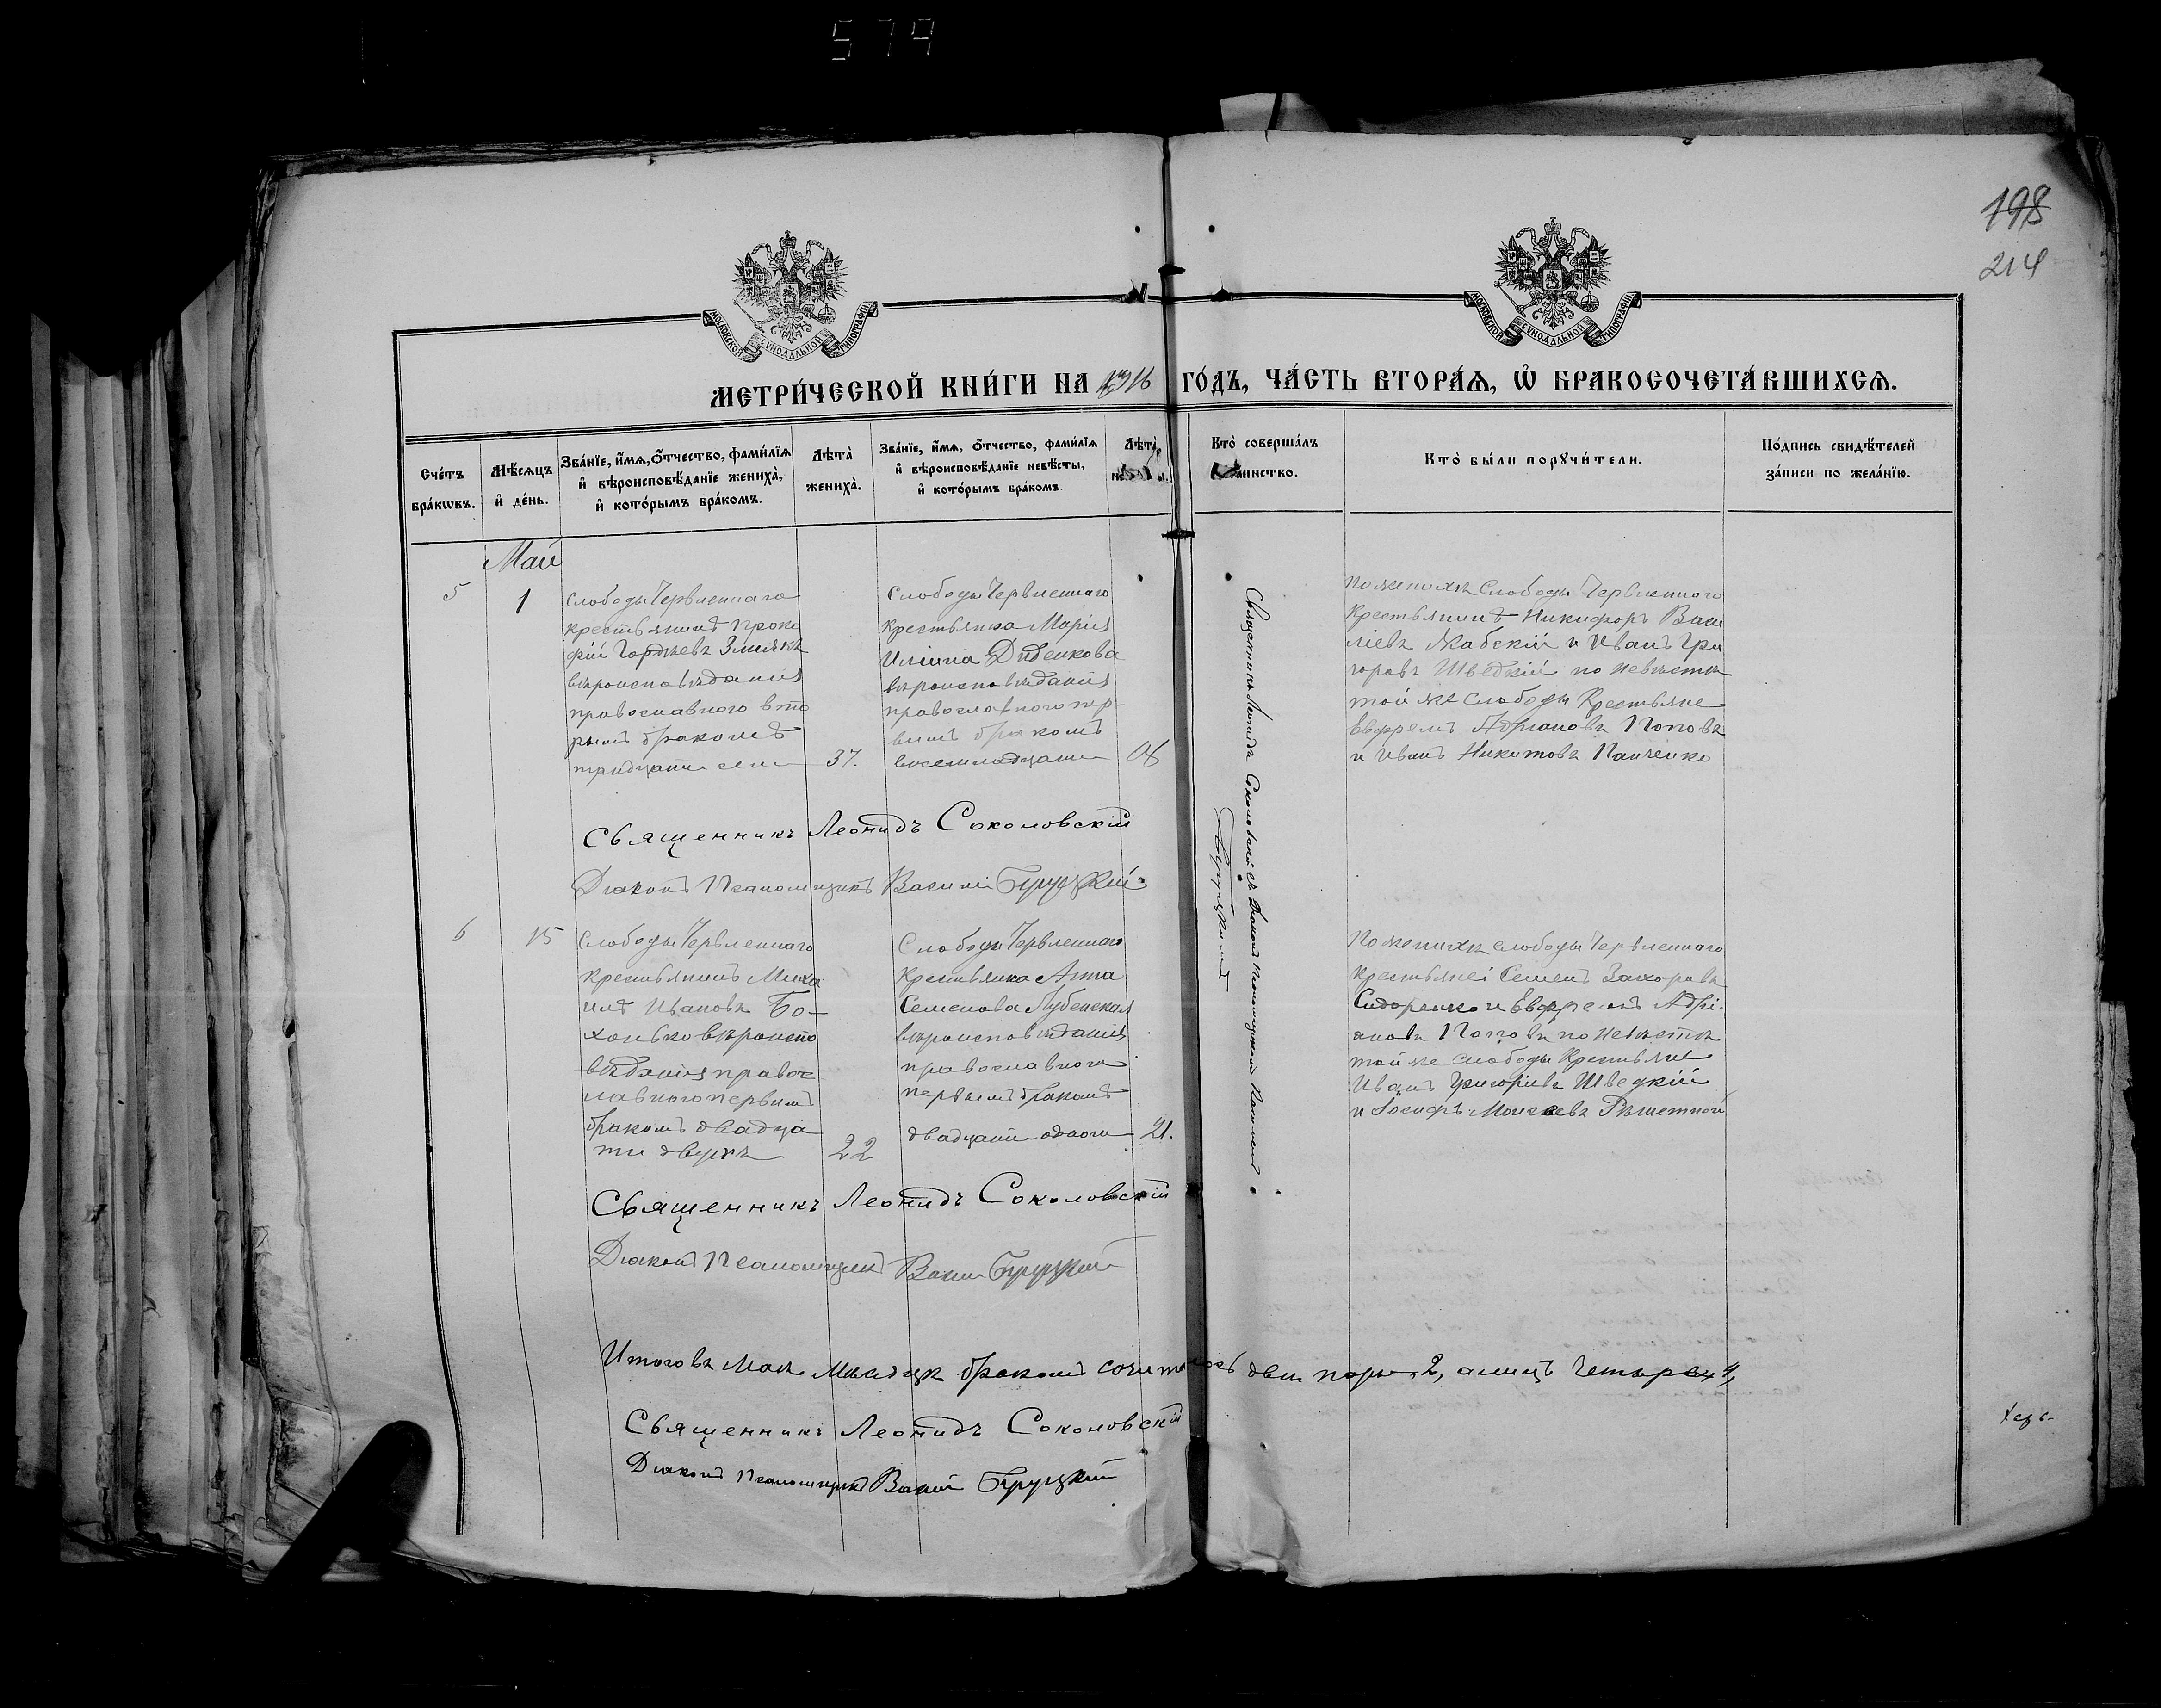 579
198
214
МОСКОВСКОЙ СѴНОДАЛЬНОЙ ТИПОГРАФІИ
МОСКОВСКОЙ СѴНОДАЛЬНОЙ ТИПОГРАФІИ
МЕТРИ́ЧЕСКОЙ КНИ́ГИ НА 1916 ГО́ДЪ, ЧА́СТЬ ВТОРА́Я, Ѡ БРАКОСОЧЕТА́ВШИХСЯ.
Сче́тъ бра́кѡвъ.
Мѣ́сяцъ и де́нь.
Зва́нїе, и́мя, о́тчество, фами́лїя и вѣроисповѣ́данїе жениха̀, и кото́рымъ бра́комъ.
Лѣта̀ жениха̀.
Зва́нїе, и́мя, о́тчество, фами́лїя и вѣроисповѣ́данїе невѣ́сты, и кото́рымъ бра́комъ.
Лѣта̀
Кто̀ соверша́лъ таинство.
Кто̀ бы́ли порꙋчи́тели.
По́дпись свидѣ́телей за́писи по жела́нїю.
Май
5
1
Слободы Червленнаго
крестьянинъ Проко
фій Гордѣевъ Змiякъ
вѣроисповѣданія
православного вто
рымъ бракомъ
тридцати семи
37.
Слободы Червленнаго
крестьянка Марія
Ильина Диденкова
вѣроисповѣданія
православного пер-
вымъ бракомъ
восемнадцати
Священникъ Леонидъ Соколовскій съ Діакономъ Псаломщикомъ Василіемъ
Бруцкимъ
По женихѣ Слободы Червленнаго
Крестьянинъ Никифоръ Васи
ліевъ Жабскій и Иванъ Гри
горовъ Шведкій по невѣстѣ
той же слободы Крестьяне
Евфремъ Адріановъ Поповъ
и Иванъ Никитовъ Панченко
Священникъ Леонидъ Соколовскій
Діаконъ Псаломщикъ Василій Бруцкій
6
15
Слободы Червленнаго
Крестьянинъ Миха
илъ Ивановъ Бо-
хонько вѣроиспо
вѣданія правос
лавного первымъ
бракомъ двадца
ти двухъ
22
Слободы Червленнаго
Крестьянка Анна
Семенова Лубенская
вѣроисповѣданія
православного
первымъ бракомъ
двадцати одного
21.
По женихѣ слободы Червленнаго
Крестьяне Семенъ Захаровъ
Сидоренко и Евфремъ Адрі
ановъ Поповъ по невѣстѣ
той же слободы Крестьяне
Иванъ Григоріевъ Шведкій
и Іосифъ Моисеевъ Рѣшетной
Священникъ Леонидъ Соколовскій
Діаконъ Псаломщикъ Василій Бруцкій
Итого въ Маѣ мѣсяцѣ бракомъ сочеталось двѣ пары 2, а лицъ четыре 4,
Священникъ Леонидъ Соколовскій
Діаконъ Псаломщикъ Василій Бруцкій